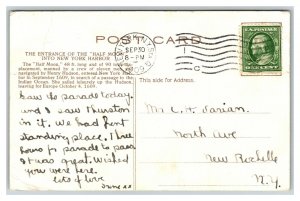 POST CARD
THE ENTRANCE OF THE "HALF MOON"
INTO NEW YORK HARBOR
The "Half Moon," 48 ft. long and of 80 tons
placement, manned by a crew of eleven
navigated by Henry Hudson, entered New York
bor in September 1609, in search of a passage to the
Indian Ocean. She sailed up the Hudson, leaving
for Europe October 4, 1609.
SEP 30
8-PM
1909
1
C
U.S. POSTAGE
ONE CENT
This side for Address.
Saw the parade today
and I saw Thurston
in it. We had front
standing place. Three
hours for parade to pass
it was great. Wished
you were here.
lots of love
Mr. C. H. Darian.
North Ave
New Rochelle
N.Y.